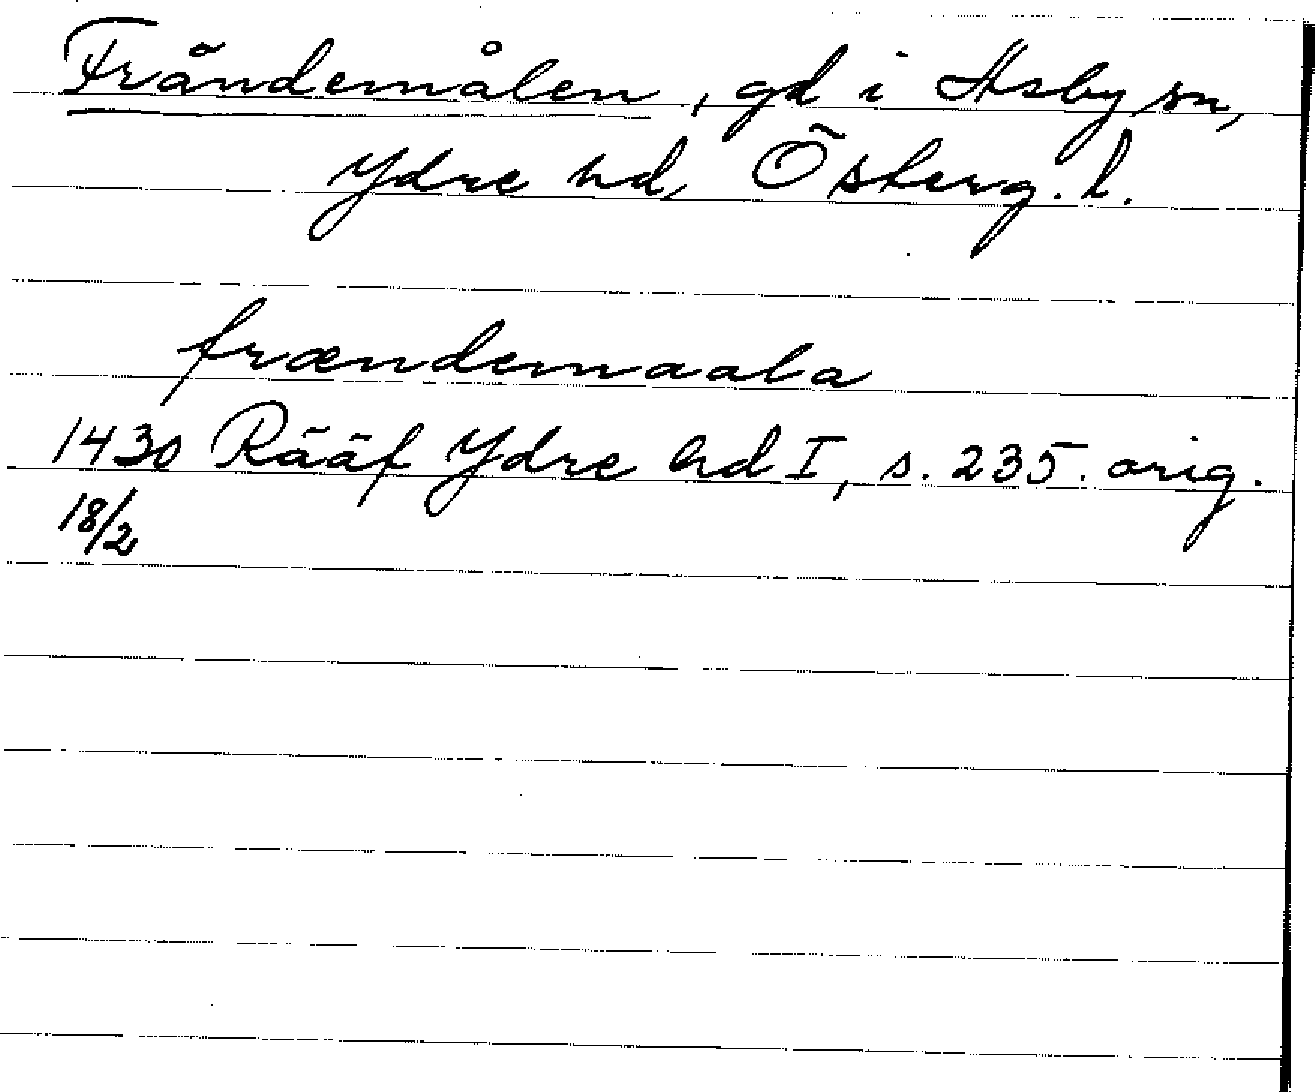 Frändemålen, gd i Asby sn,
Ydre hd, Österg. l.
frændemaala
1430 Rääf Ydre hd I, s. 235. orig.
18/2